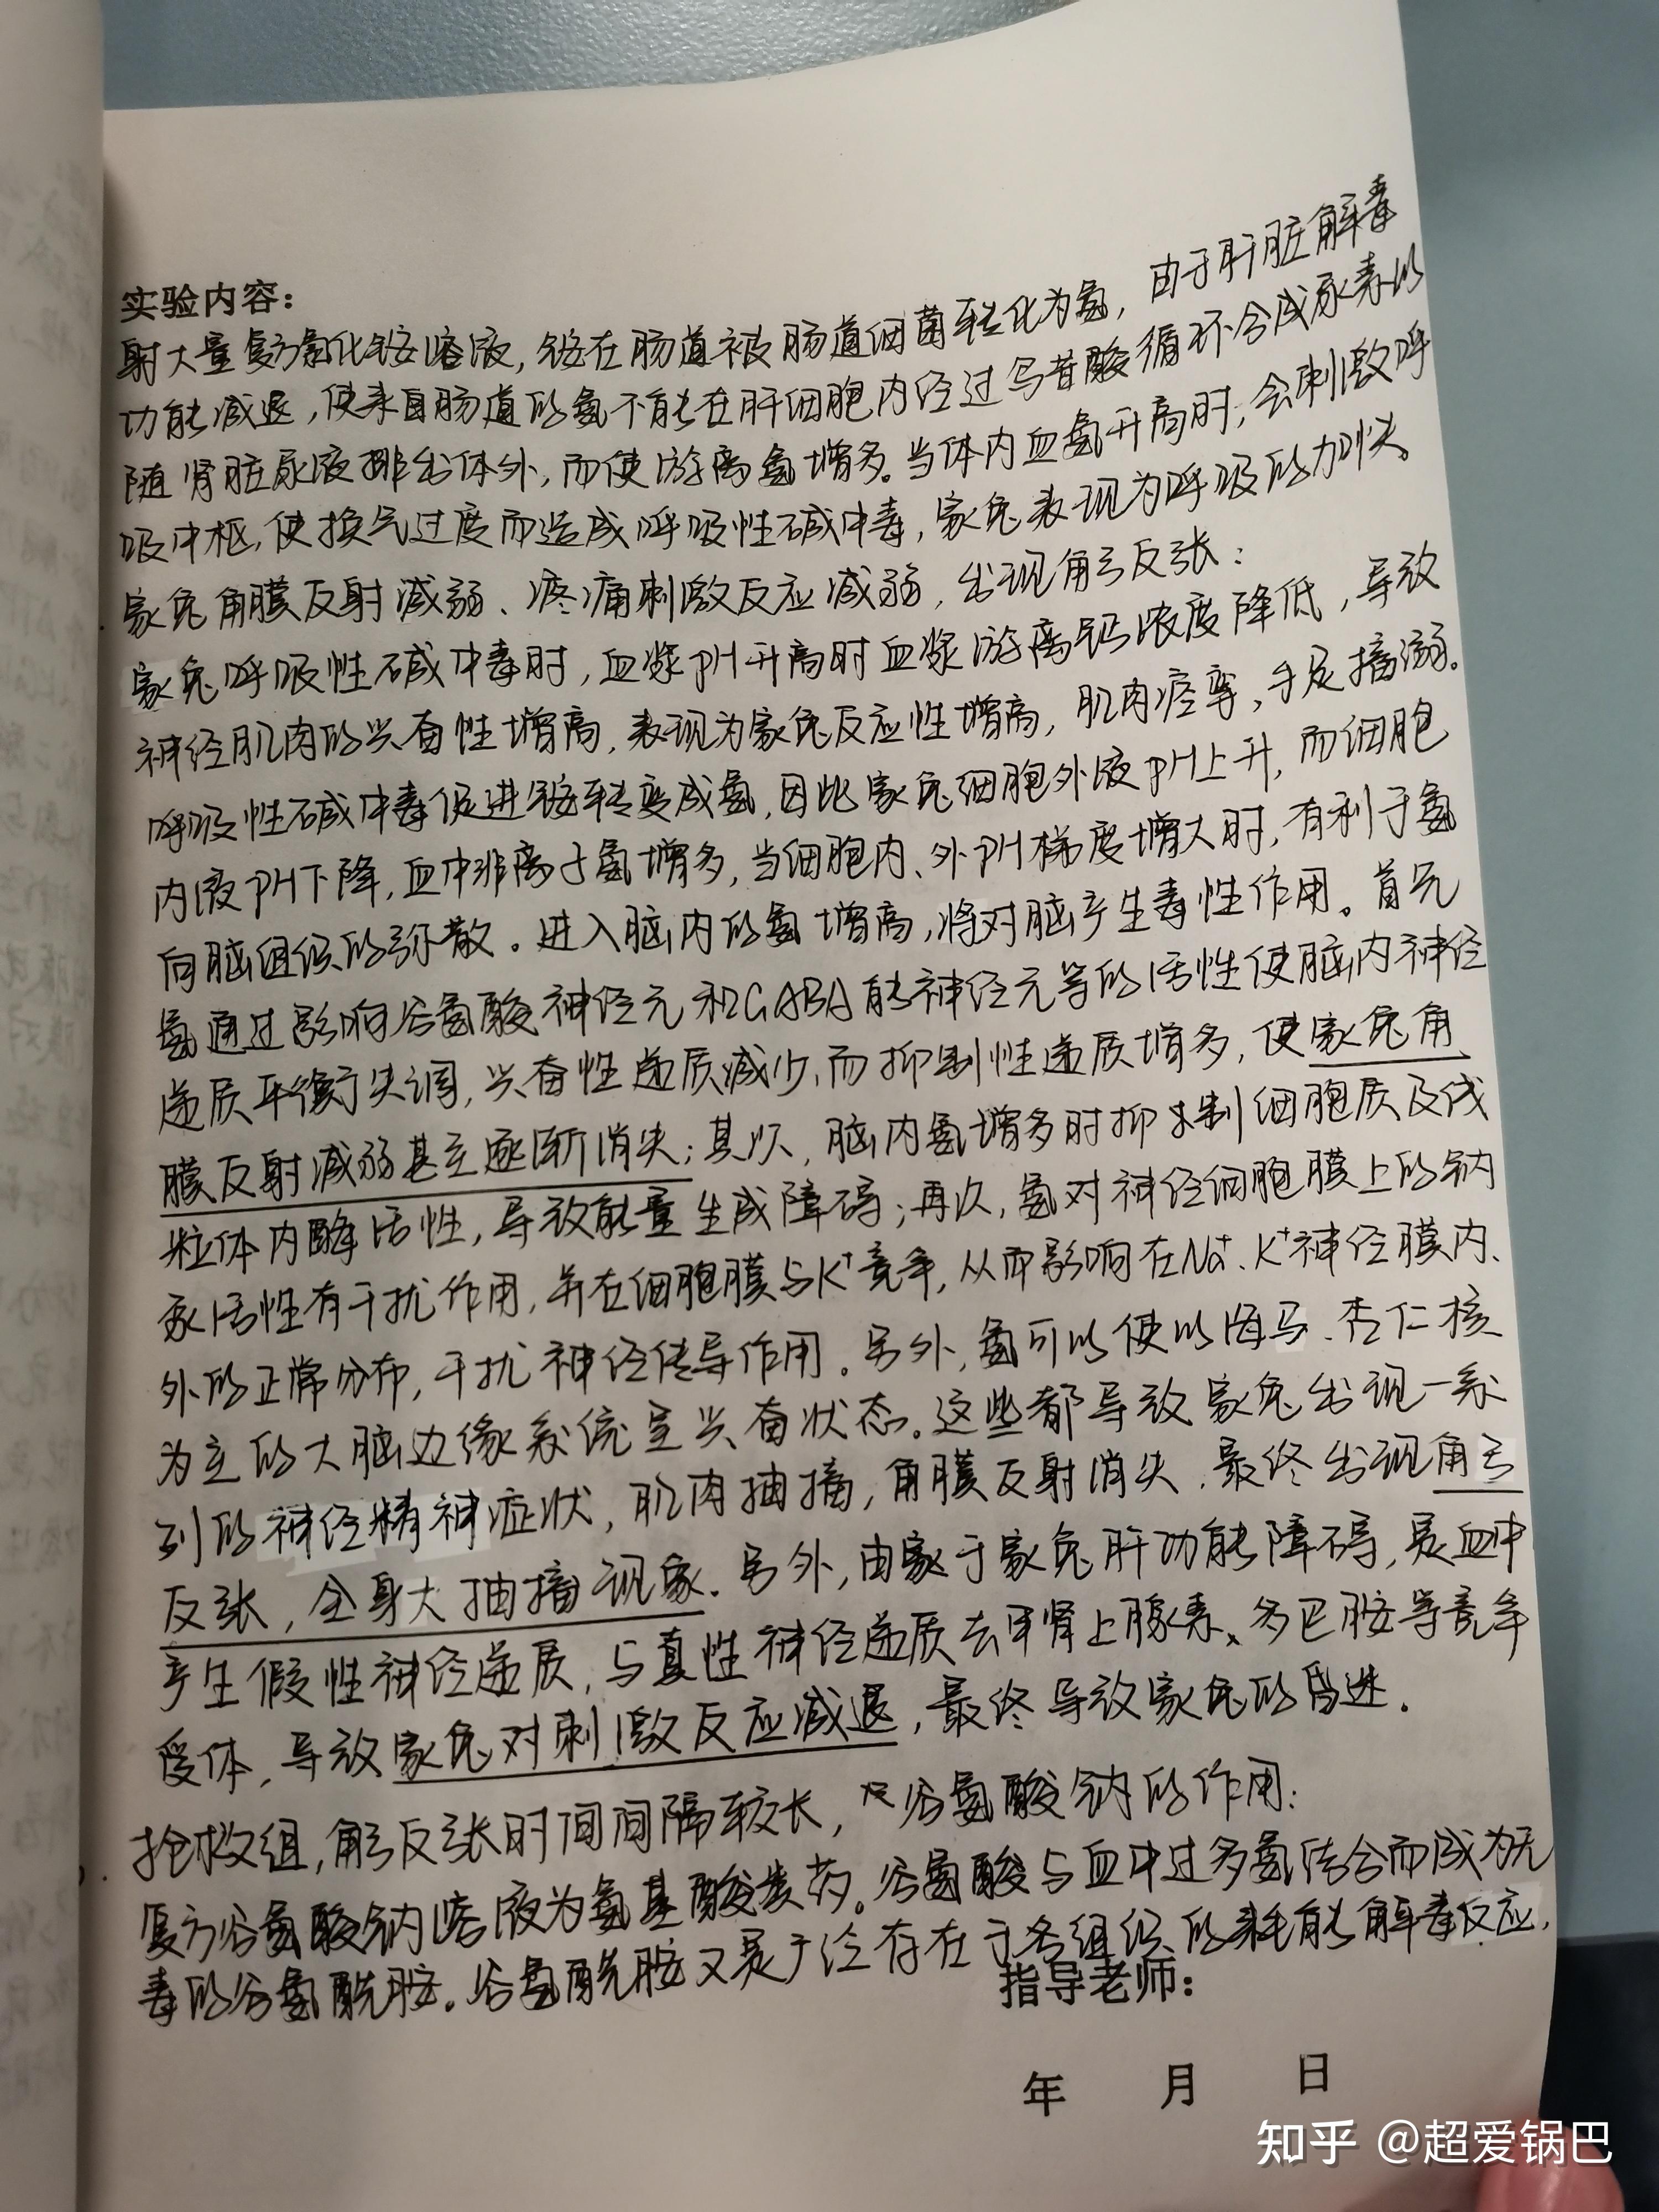 实验内容：
射大量复方氯化铵溶液，铵在肠道被肠道细菌转化为氨，由于肝脏解毒
功能减退，使来自肠道的氨不能在肝细胞内经过鸟昔酸循环合成尿素以
随肾脏尿液排出体外，而使游离氨增多。当体内血氨升高时，会刺激呼
吸中枢，使换气过度而造成呼吸性碱中毒，家兔表现为呼吸的加快。
家兔角膜反射减弱、疼痛刺激反应减弱，出现角弓反张：
家兔呼吸性碱中毒时，血浆pH升高时血浆游离钙浓度降低，导致
神经肌肉的兴奋性增高，表现为家兔反应性增高，肌肉痉挛，手足搐溺。
呼吸性碱中毒促进铵转变成氨，因此家兔细胞外液pH上升，而细胞
内液pH下降，血中非离子氨增多，当细胞内、外pH梯度增大时，有利于氨
向脑组织的弥散。进入脑内的氨增高，将对脑产生毒性作用。首先
氨通过影响谷氨酸神经元和GABA能神经元等的活性使脑内神经
递质平衡失调，兴奋性递质减少，而抑制性递质增多，使家兔角
膜反射减弱甚至逐渐消失；其次，脑内氨增多时抑制细胞质及线
粒体内酶活性，导致能量生成障碍；再次，氨对神经细胞膜上的钠
泵活性有干扰作用，并在细胞膜与K⁺竞争，从而影响在Na⁺、K⁺神经膜内、
外的正常分布，干扰神经传导作用。另外，氨可以使以海马、杏仁核
为主的大脑边缘系统呈兴奋状态。这些都导致家兔出现一系
列的神经精神症状，肌肉抽搐，角膜反射消失，最终出现角弓
反张，全身大抽搐现象。另外，由于家兔肝功能障碍，血中
产生假性神经递质，与真性神经递质去甲肾上腺素、多巴胺等竞争
受体，导致家兔对刺激反应减退，最终导致家兔的昏迷。
抢救组，角弓反张时间间隔较长，谷氨酸钠的作用：
复方谷氨酸钠溶液为氨基酸类药。谷氨酸与血中过多氨结合而成为无
毒的谷氨酰胺。谷氨酰胺又是存在于各组织的耗能解毒反应，
指导老师：
年 月 日
知乎 @超爱锅巴